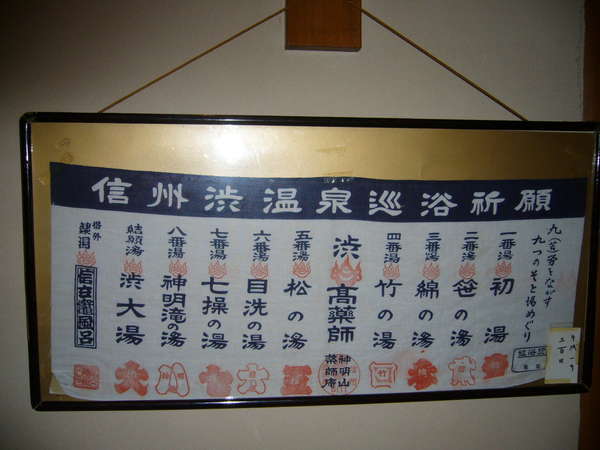 信州渋温泉巡浴祈願
九(苦)労をながす
九つのそと湯めぐり
一番湯 初湯
二番湯 笹の湯
三番湯 綿の湯
四番湯 竹の湯
渋高薬師
神明山
薬師庵
五番湯 松の湯
六番湯 目洗の湯
七番湯 七操の湯
八番湯 神明滝の湯
結願湯 渋大湯
番外
信玄竈風呂